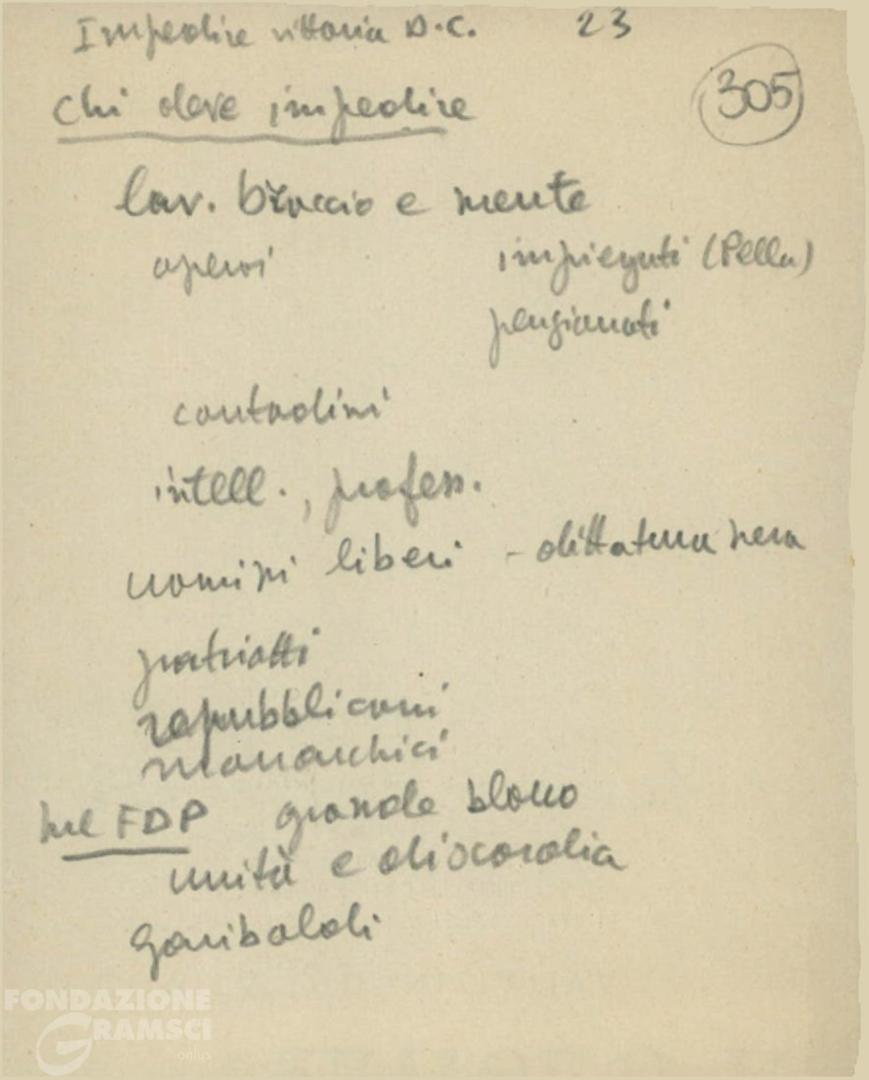 Impedire vittoria D.C. 23
305
Chi deve impedire
lav. braccio e mente
operai impiegati (Pella)
pensionati
contadini
intell., profess.
uomini liberi - dittatura nera
patriotti
repubblicani
monarchici
nel FDP grande blocco
unità e discordia
Garibaldi
FONDAZIONE
GRAMSCI
onlus